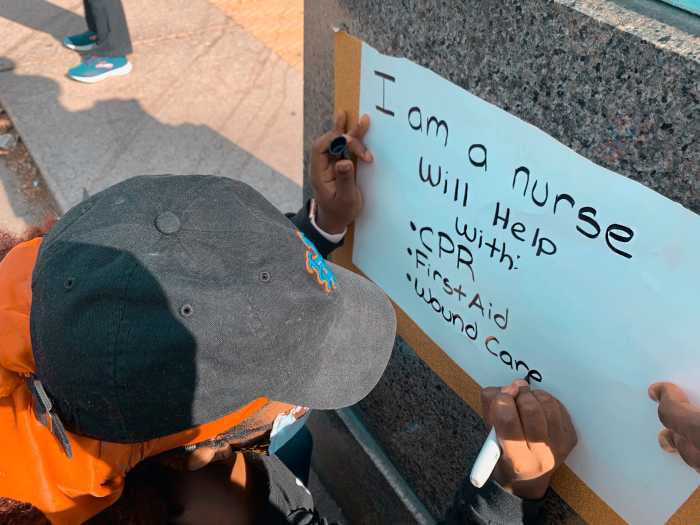 I am a nurse
Will Help
with:
•CPR
•First Aid
•Wound Care